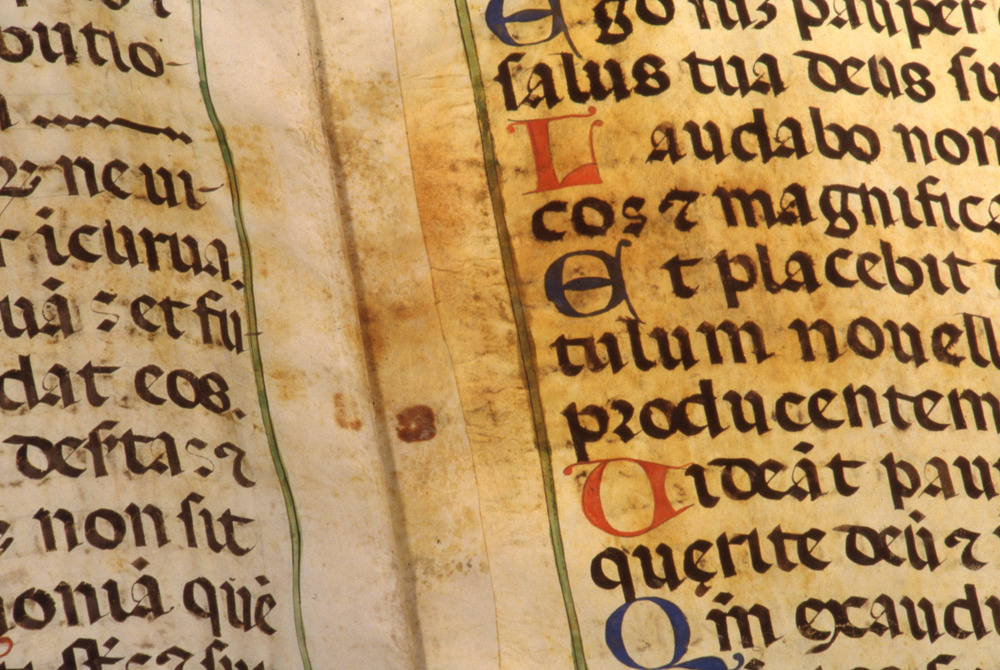 butio-
ne ui-
r icurua
uā : et fii
dat eos.
desrta s ⁊
non sit
oniā que
Ego nuz pauper
salus tua deus su
Laudabo nom
cos ⁊ magnifica
Et placebit
tulum nouell
producentem
Uideāt pau
quęrite deū ⁊
Qm exaudi